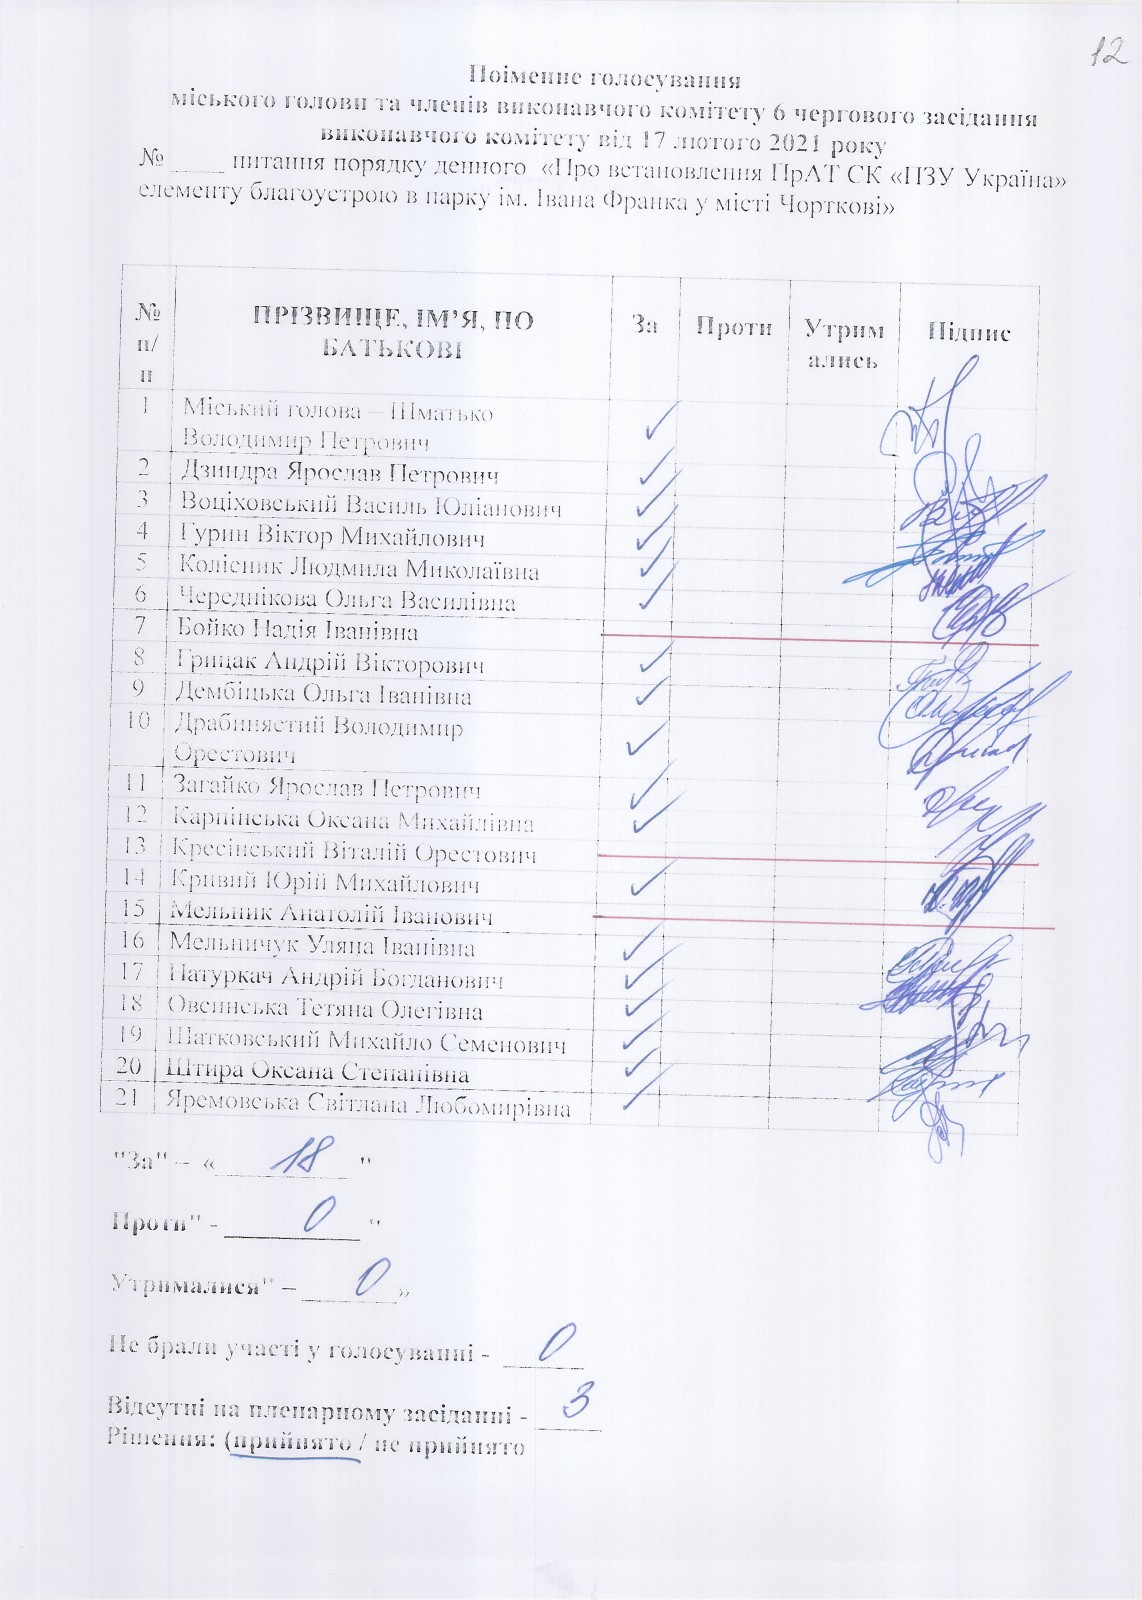 12
Поіменне голосування
міського голови та членів виконавчого комітету 6 чергового засідання
виконавчого комітету від 17 лютого 2021 року
№ ____ питання порядку денного «Про встановлення ПрАТ СК «ПЗУ Україна»
елементу благоустрою в парку ім. Івана Франка у місті Чорткові»
№ п/п ПРІЗВИЩЕ, ІМ’Я, ПО БАТЬКОВІ За Проти Утримались Підпис
1 Міський голова – Шматько
Володимир Петрович ✓
2 Дзиндра Ярослав Петрович ✓
3 Воціховський Василь Юліанович ✓
4 Гурин Віктор Михайлович ✓
5 Колісник Людмила Миколаївна ✓
6 Череднікова Ольга Василівна ✓
7 Бойко Надія Іванівна
8 Грицак Андрій Вікторович ✓
9 Дембіцька Ольга Іванівна ✓
10 Драбинястий Володимир
Орестович ✓
11 Загайко Ярослав Петрович ✓
12 Карпінська Оксана Михайлівна ✓
13 Кресінський Віталій Орестович
14 Кривий Юрій Михайлович ✓
15 Мельник Анатолій Іванович
16 Мельничук Уляна Іванівна ✓
17 Натуркач Андрій Богданович ✓
18 Овсинська Тетяна Олегівна ✓
19 Шатковський Михайло Семенович ✓
20 Штира Оксана Степанівна ✓
21 Яремовська Світлана Любомирівна ✓
"За" – «18"
Проти" - 0 "
Утрималися" – 0»
Не брали участі у голосуванні - 0
Відсутні на пленарному засіданні - 3
Рішення: (прийнято / не прийнято